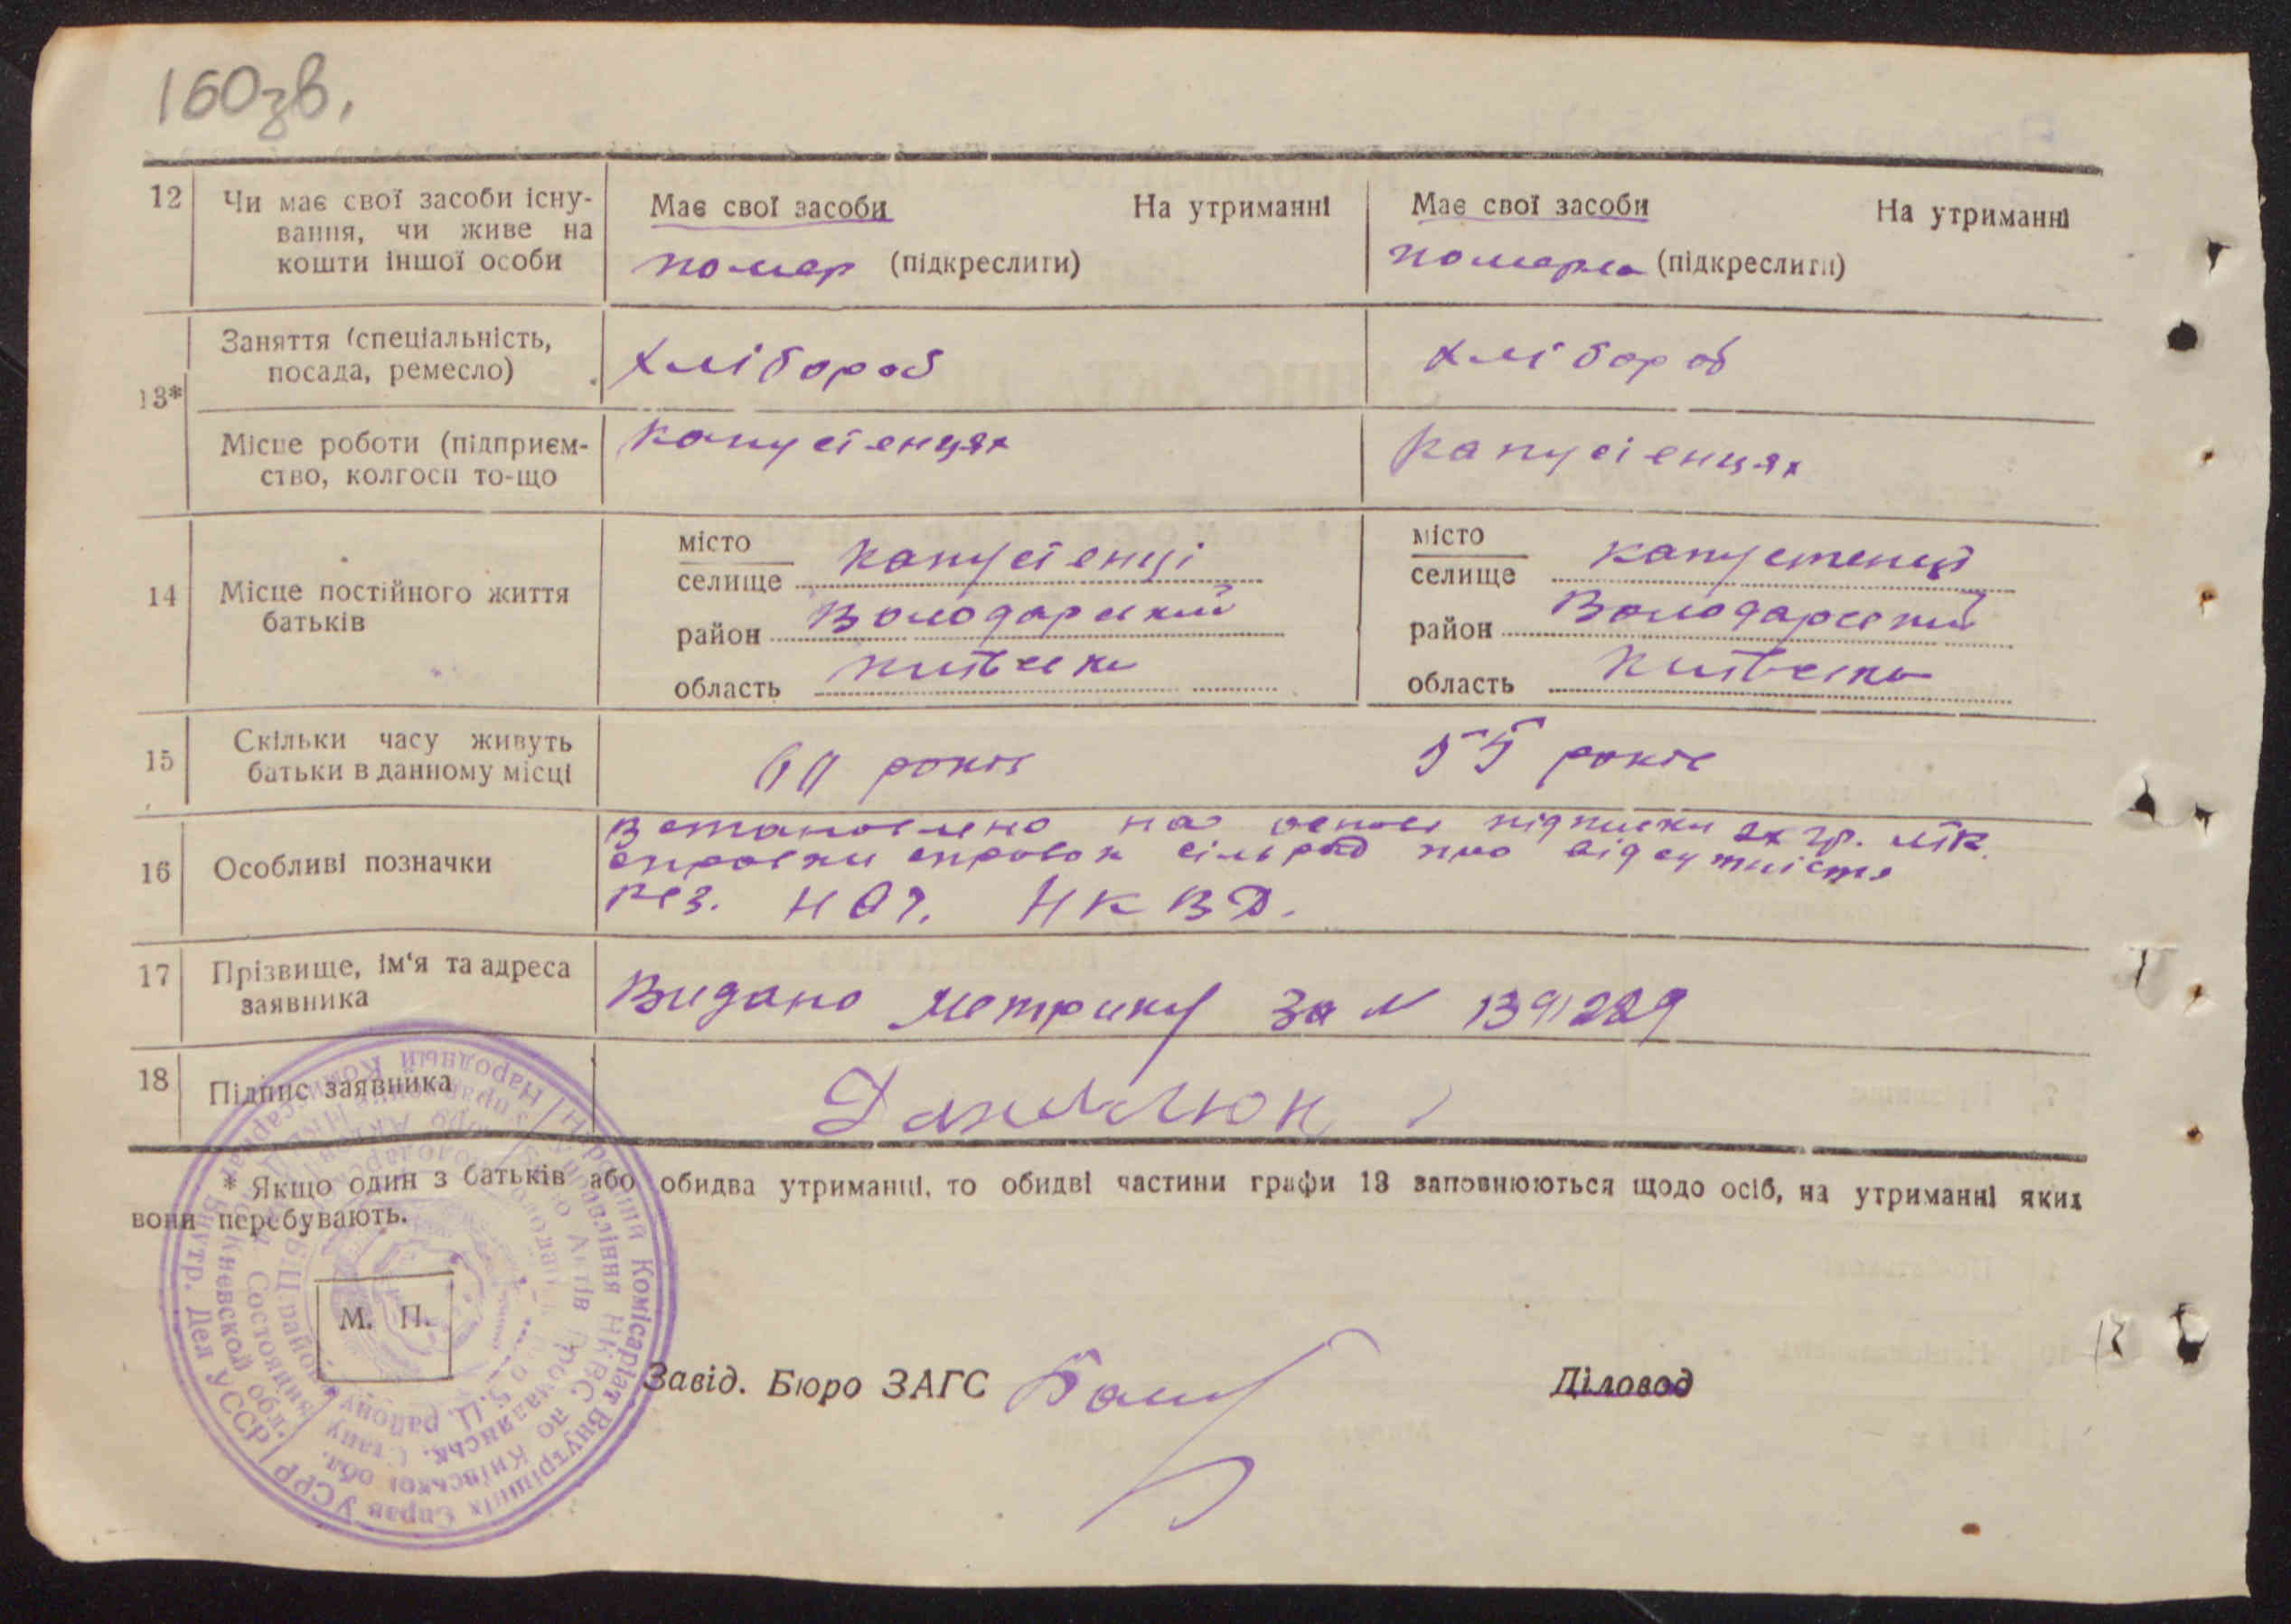 160зв.
12 Чи має свої засоби існу-
вання, чи живе на
кошти іншої особи
Має свої засоби На утриманні
помер (підкреслити)
Має свої засоби На утриманні
померла (підкреслити)
13*
Заняття (спеціальність,
посада, ремесло)
Хлібороб
Хлібороб
Місце роботи (підприєм-
ство, колгосп то-що
Капустенцях
Капустенцях
14 Місце постійного життя
батьків
місто
селище Капустенці
район Володарський
область Київська
місто
селище Капустенці
район Володарський
область Київська
15 Скільки часу живуть
батьки в данному місці
60 років
55 років
16 Особливі позначки
Встановлено на основі підписки 2х гр. лік.
справки справок сільрад про відсутність
рез. НКВД.
17 Прізвище, ім'я та адреса
заявника
Видано метрику за № 139/229
18 Підпис заявника
Данилюк
* Якщо один з батьків або обидва утриманці, то обидві частини графи 13 заповнюються щодо осіб, на утриманні яких
вони перебувають.
М. П.
Завід. Бюро ЗАГС
Діловод
Народний Комісаріат Внутрішніх Справ УСРР
Народный Комиссариат Внутр. Дел УССР